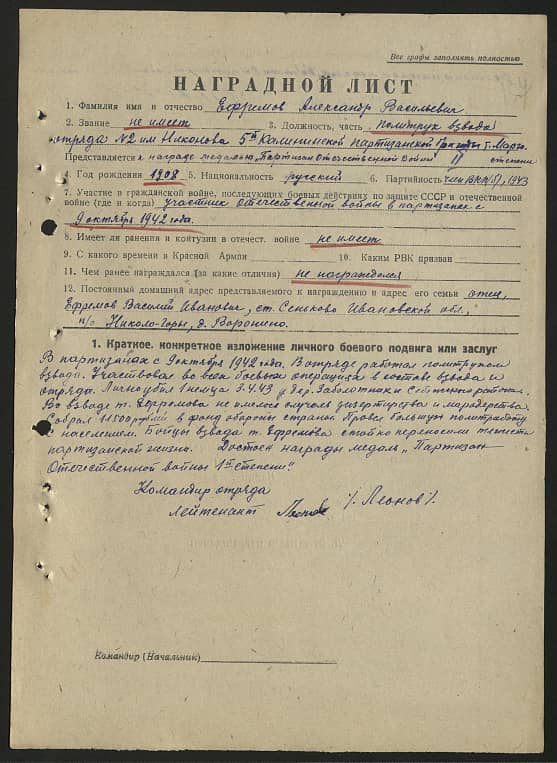 Все графы заполнять полностью
НАГРАДНОЙ ЛИСТ
1. Фамилия имя и отчество Ефремов Александр Васильевич
2. Звание не имеет 3. Должность, часть политрук взвода
отряда №2 им Никонова 5й Калининской партизанской бригады т. Март.
Представляется к награде медалью, Партизан Отечественной войны II степени
4. Год рождения 1908 5. Национальность русский 6. Партийность член ВКП(б), 1943
7. Участие в гражданской войне, последующих боевых действиях по защите СССР и отечественной
войне (где и когда) участник Отечественной войны в партизанск с
9 октября 1942 года.
8. Имеет ли ранения и контузии в отечест. войне не имеет
9. С какого времени в Красной Армии 10. Каким РВК призван
11. Чем ранее награждался (за какие отличия) не награждался
12. Постоянный домашний адрес представляемого к награждению и адрес его семьи отец,
Ефремов Василий Иванович, ст. Сеньково Ивановской обл.,
п/о Николо-Горы, д. Воронино.
1. Краткое, конкретное изложение личного боевого подвига или заслуг
В партизанах с 9 октября 1942 года. В отряде работал политруком
взвода. Участвовал во всех боевых операциях в составе взвода и
отряда. Лично убил 1 немца 3.4.43 у дер. Заболотники района.
Во взводе т. Ефремова не имелось случаев дизертирства и мародерства
Собрал рублей в фонд обороны страны. Провел большую политработу
с населением. Бойцы взвода т. Ефремова стойко переносили тяжести
партизанской жизни. Достоин награды медаль „Партизан
Отечественной войны 1й степени".
Командир отряда
лейтенант /Леонов/.
Командир (Начальник)